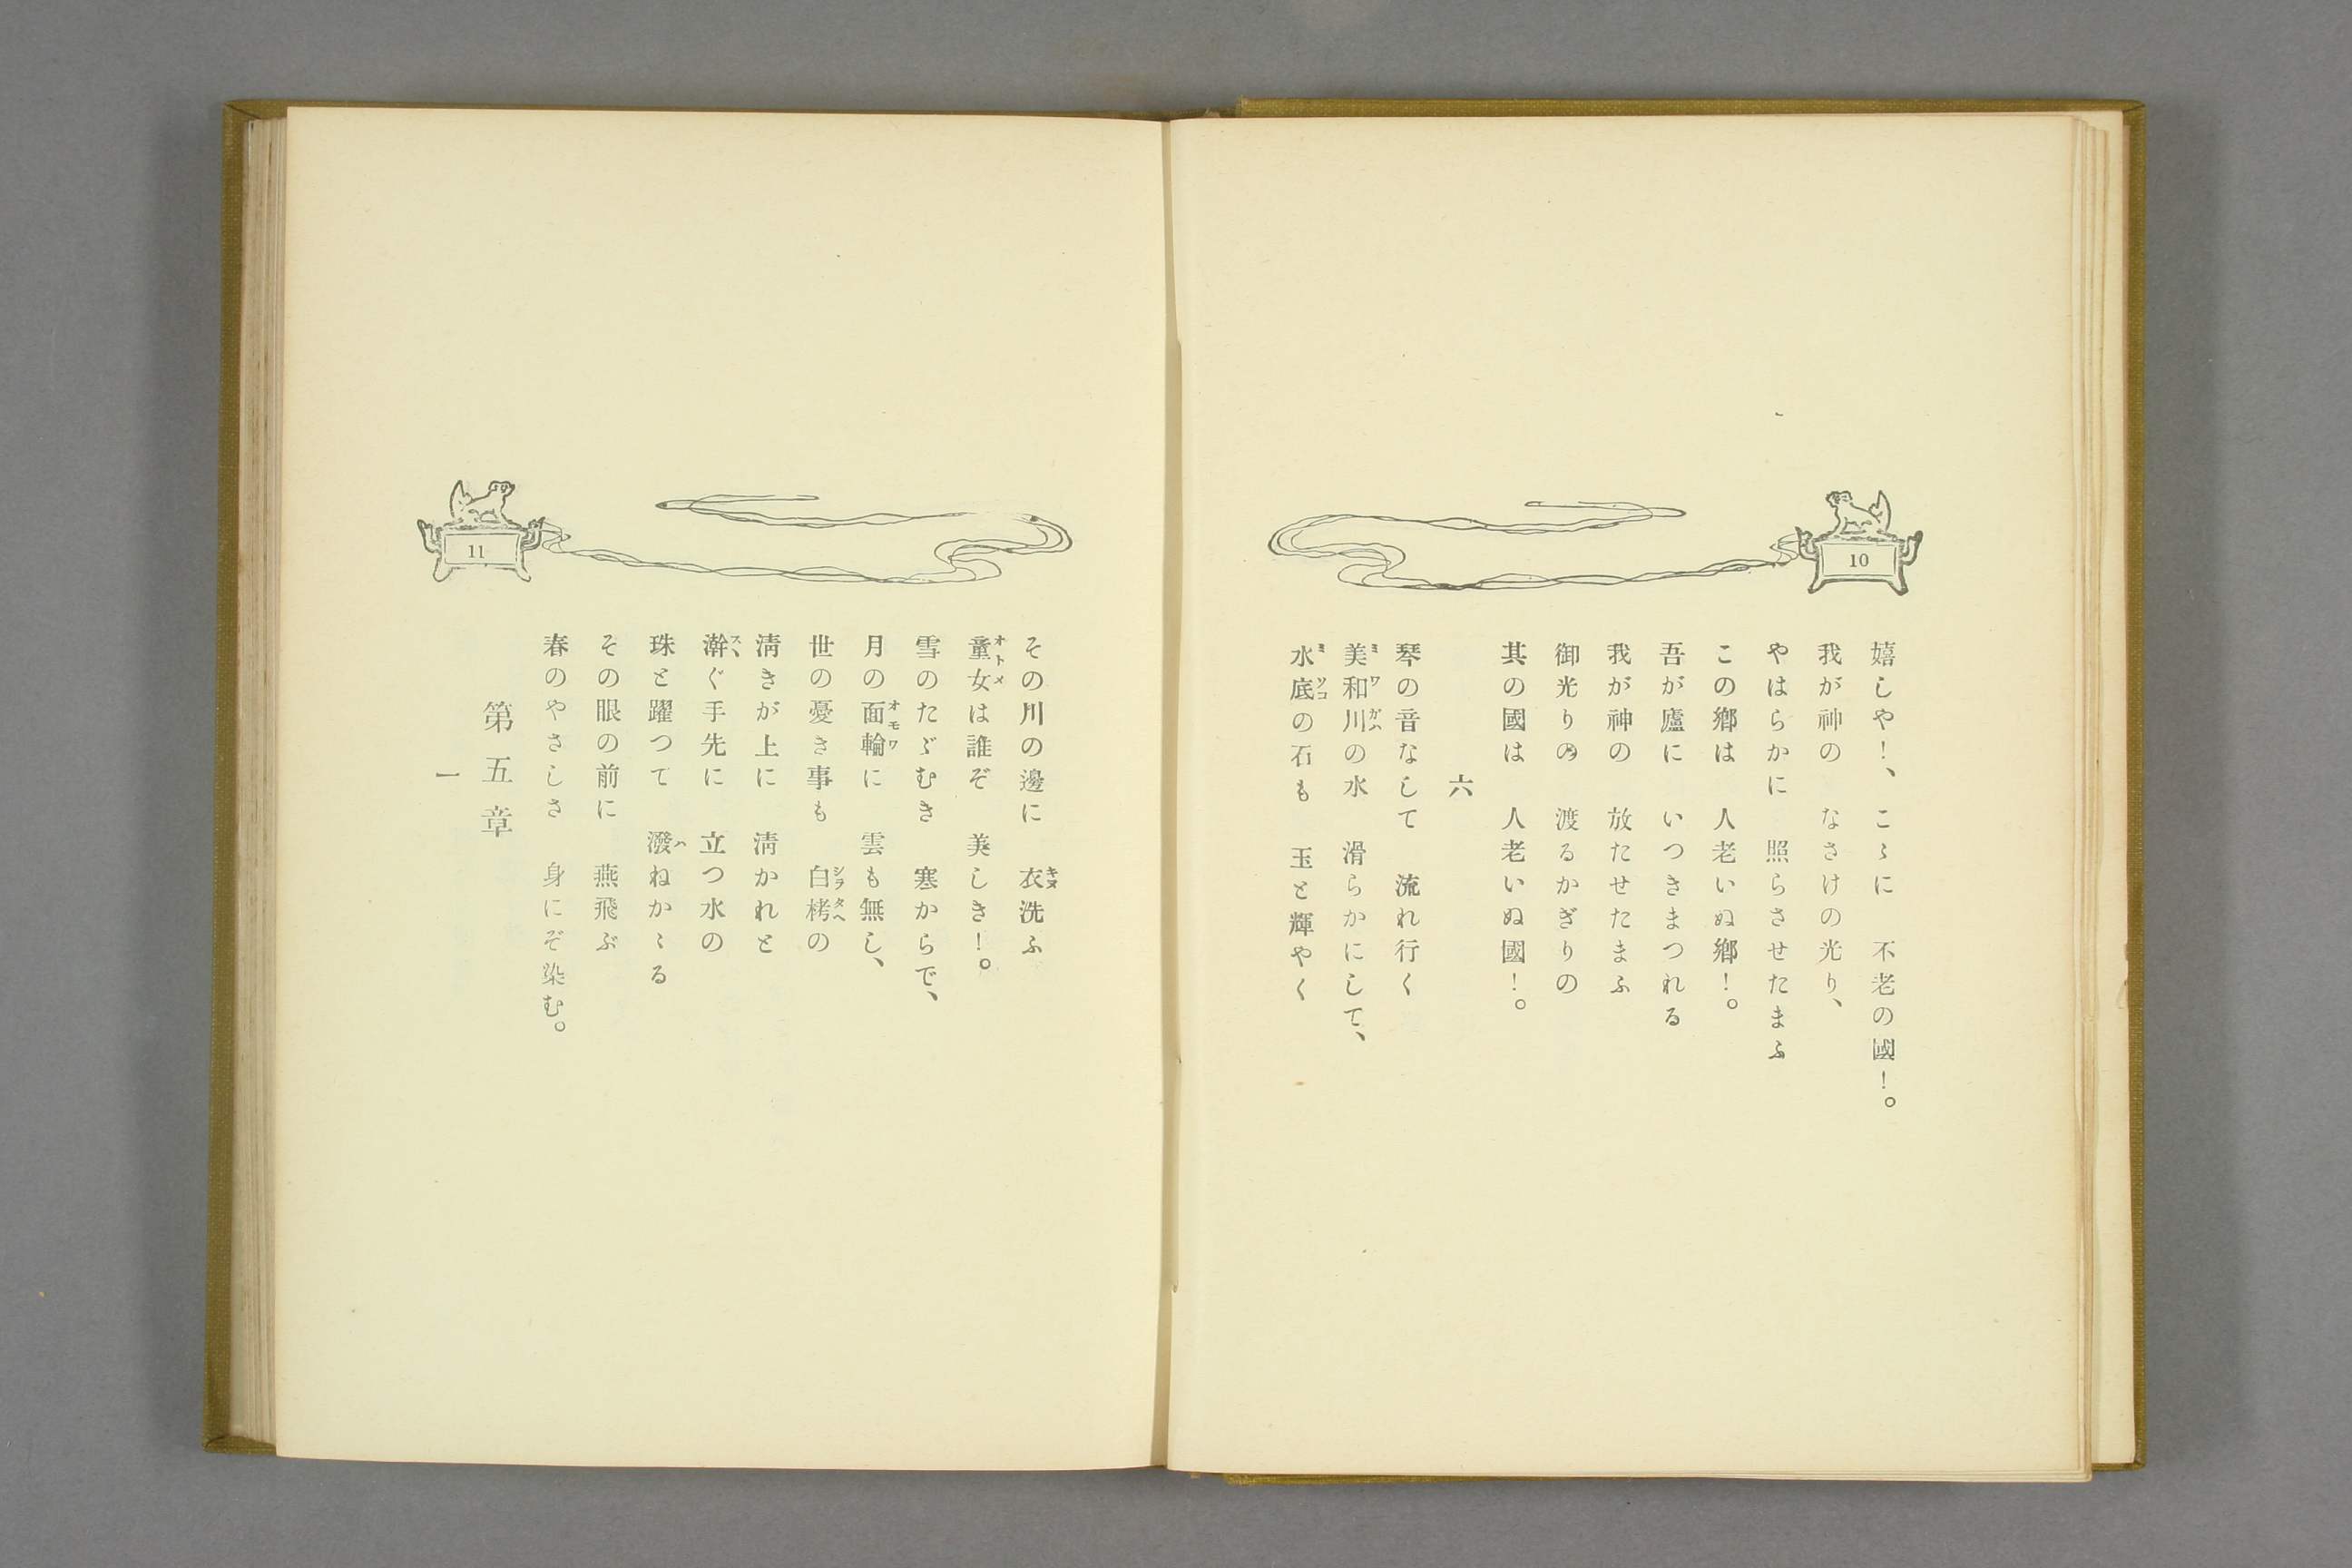 10
嬉しや！、こゝに　不老の國！。
我が神の　なさけの光り、
やはらかに　照らさせたまふ
この鄕は　人老いぬ鄕！。
吾が廬に　いつきまつれる
我が神の　放たせたまふ
御光りの　渡るかぎりの
其の國は　人老いぬ國！。
六
琴の音なして　流れ行く
美和川の水　滑らかにして、
水底の石も　玉と輝やく
11
その川の邊に　衣洗ふ
童女は誰ぞ　美しき！。
雪のたゞむき　寒からで、
月の面輪に　雲も無し、
世の憂き事も　白栲の
淸きが上に　淸かれと
澣ぐ手先に　立つ水の
珠と躍つて　潑ねかゝる
その眼の前に　燕飛ぶ
春のやさしさ　身にぞ染む。
第五章
一